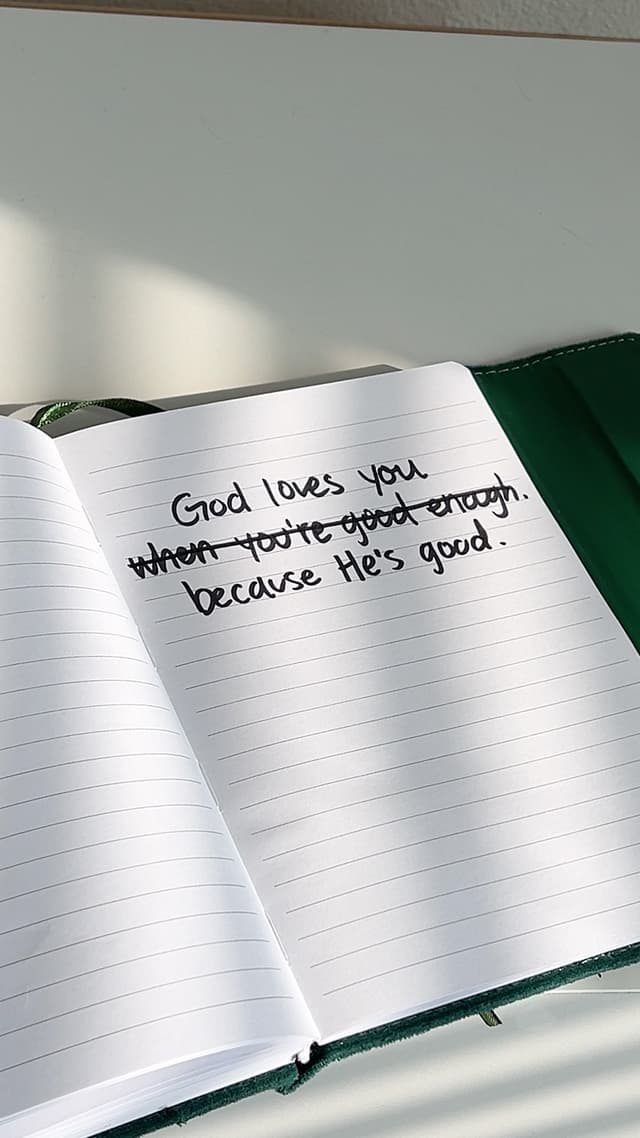 God loves you
when you're good enough.
because He's good.